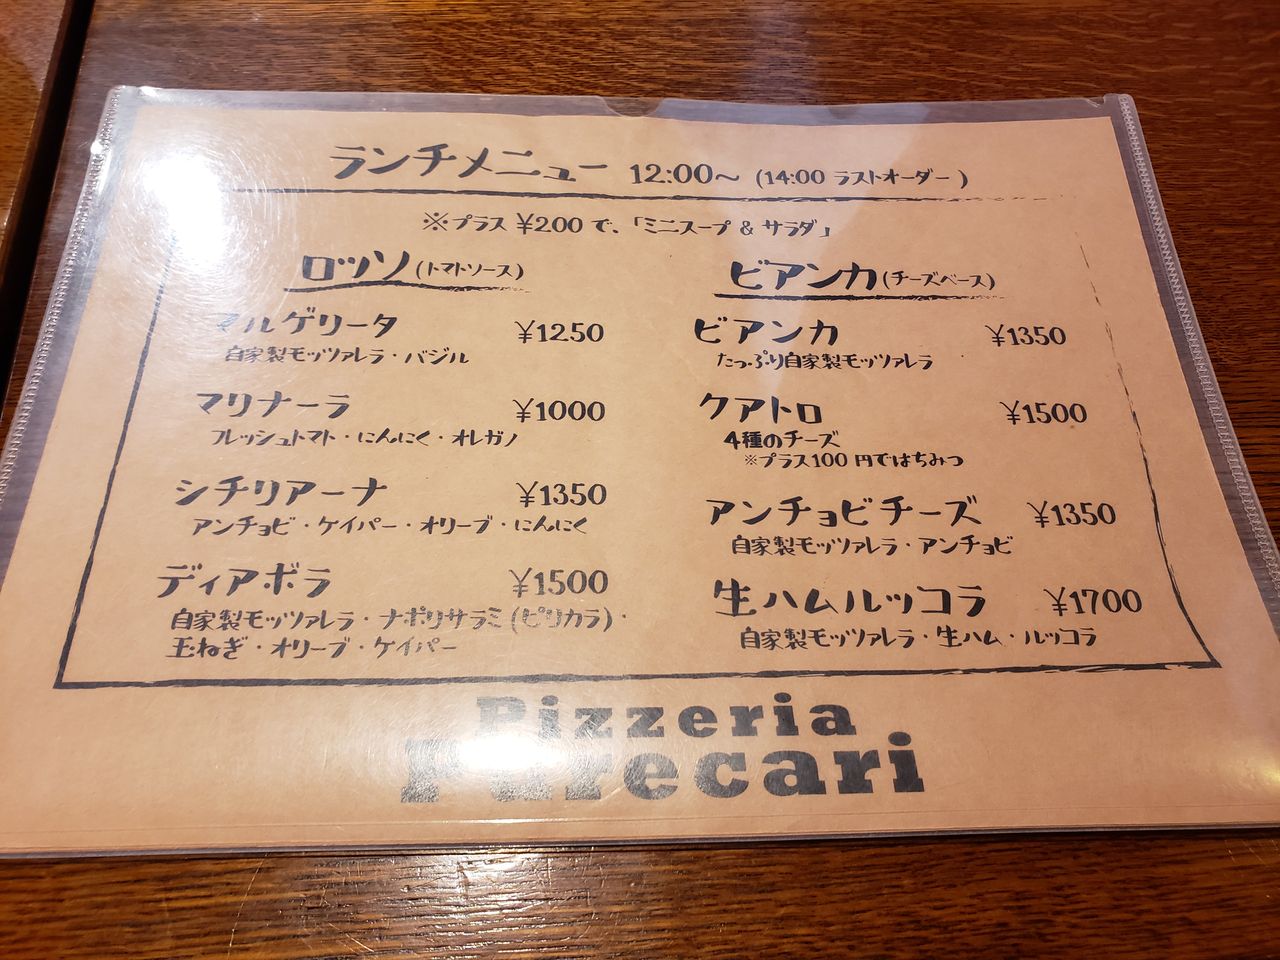 ランチメニュー 12:00〜 (14:00 ラストオーダー)
※プラス ¥200 で、「ミニスープ & サラダ」
ロッソ(トマトソース)
マルゲリータ ¥1250
自家製モッツァレラ・バジル
マリナーラ ¥1000
フレッシュトマト・にんにく・オレガノ
シチリアーナ ¥1350
アンチョビ・ケイパー・オリーブ・にんにく
ディアボラ ¥1500
自家製モッツァレラ・ナポリサラミ(ピリカラ)・
玉ねぎ・オリーブ・ケイパー
ビアンカ(チーズベース)
ビアンカ ¥1350
たっぷり自家製モッツァレラ
クアトロ ¥1500
4種のチーズ
※プラス100円ではちみつ
アンチョビチーズ ¥1350
自家製モッツァレラ・アンチョビ
生ハムルッコラ ¥1700
自家製モッツァレラ・生ハム・ルッコラ
Pizzeria